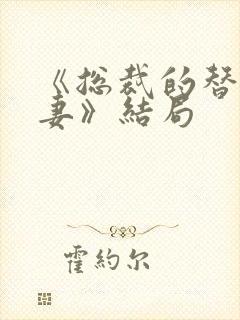 《总裁的替
妻》結局
霍約尔